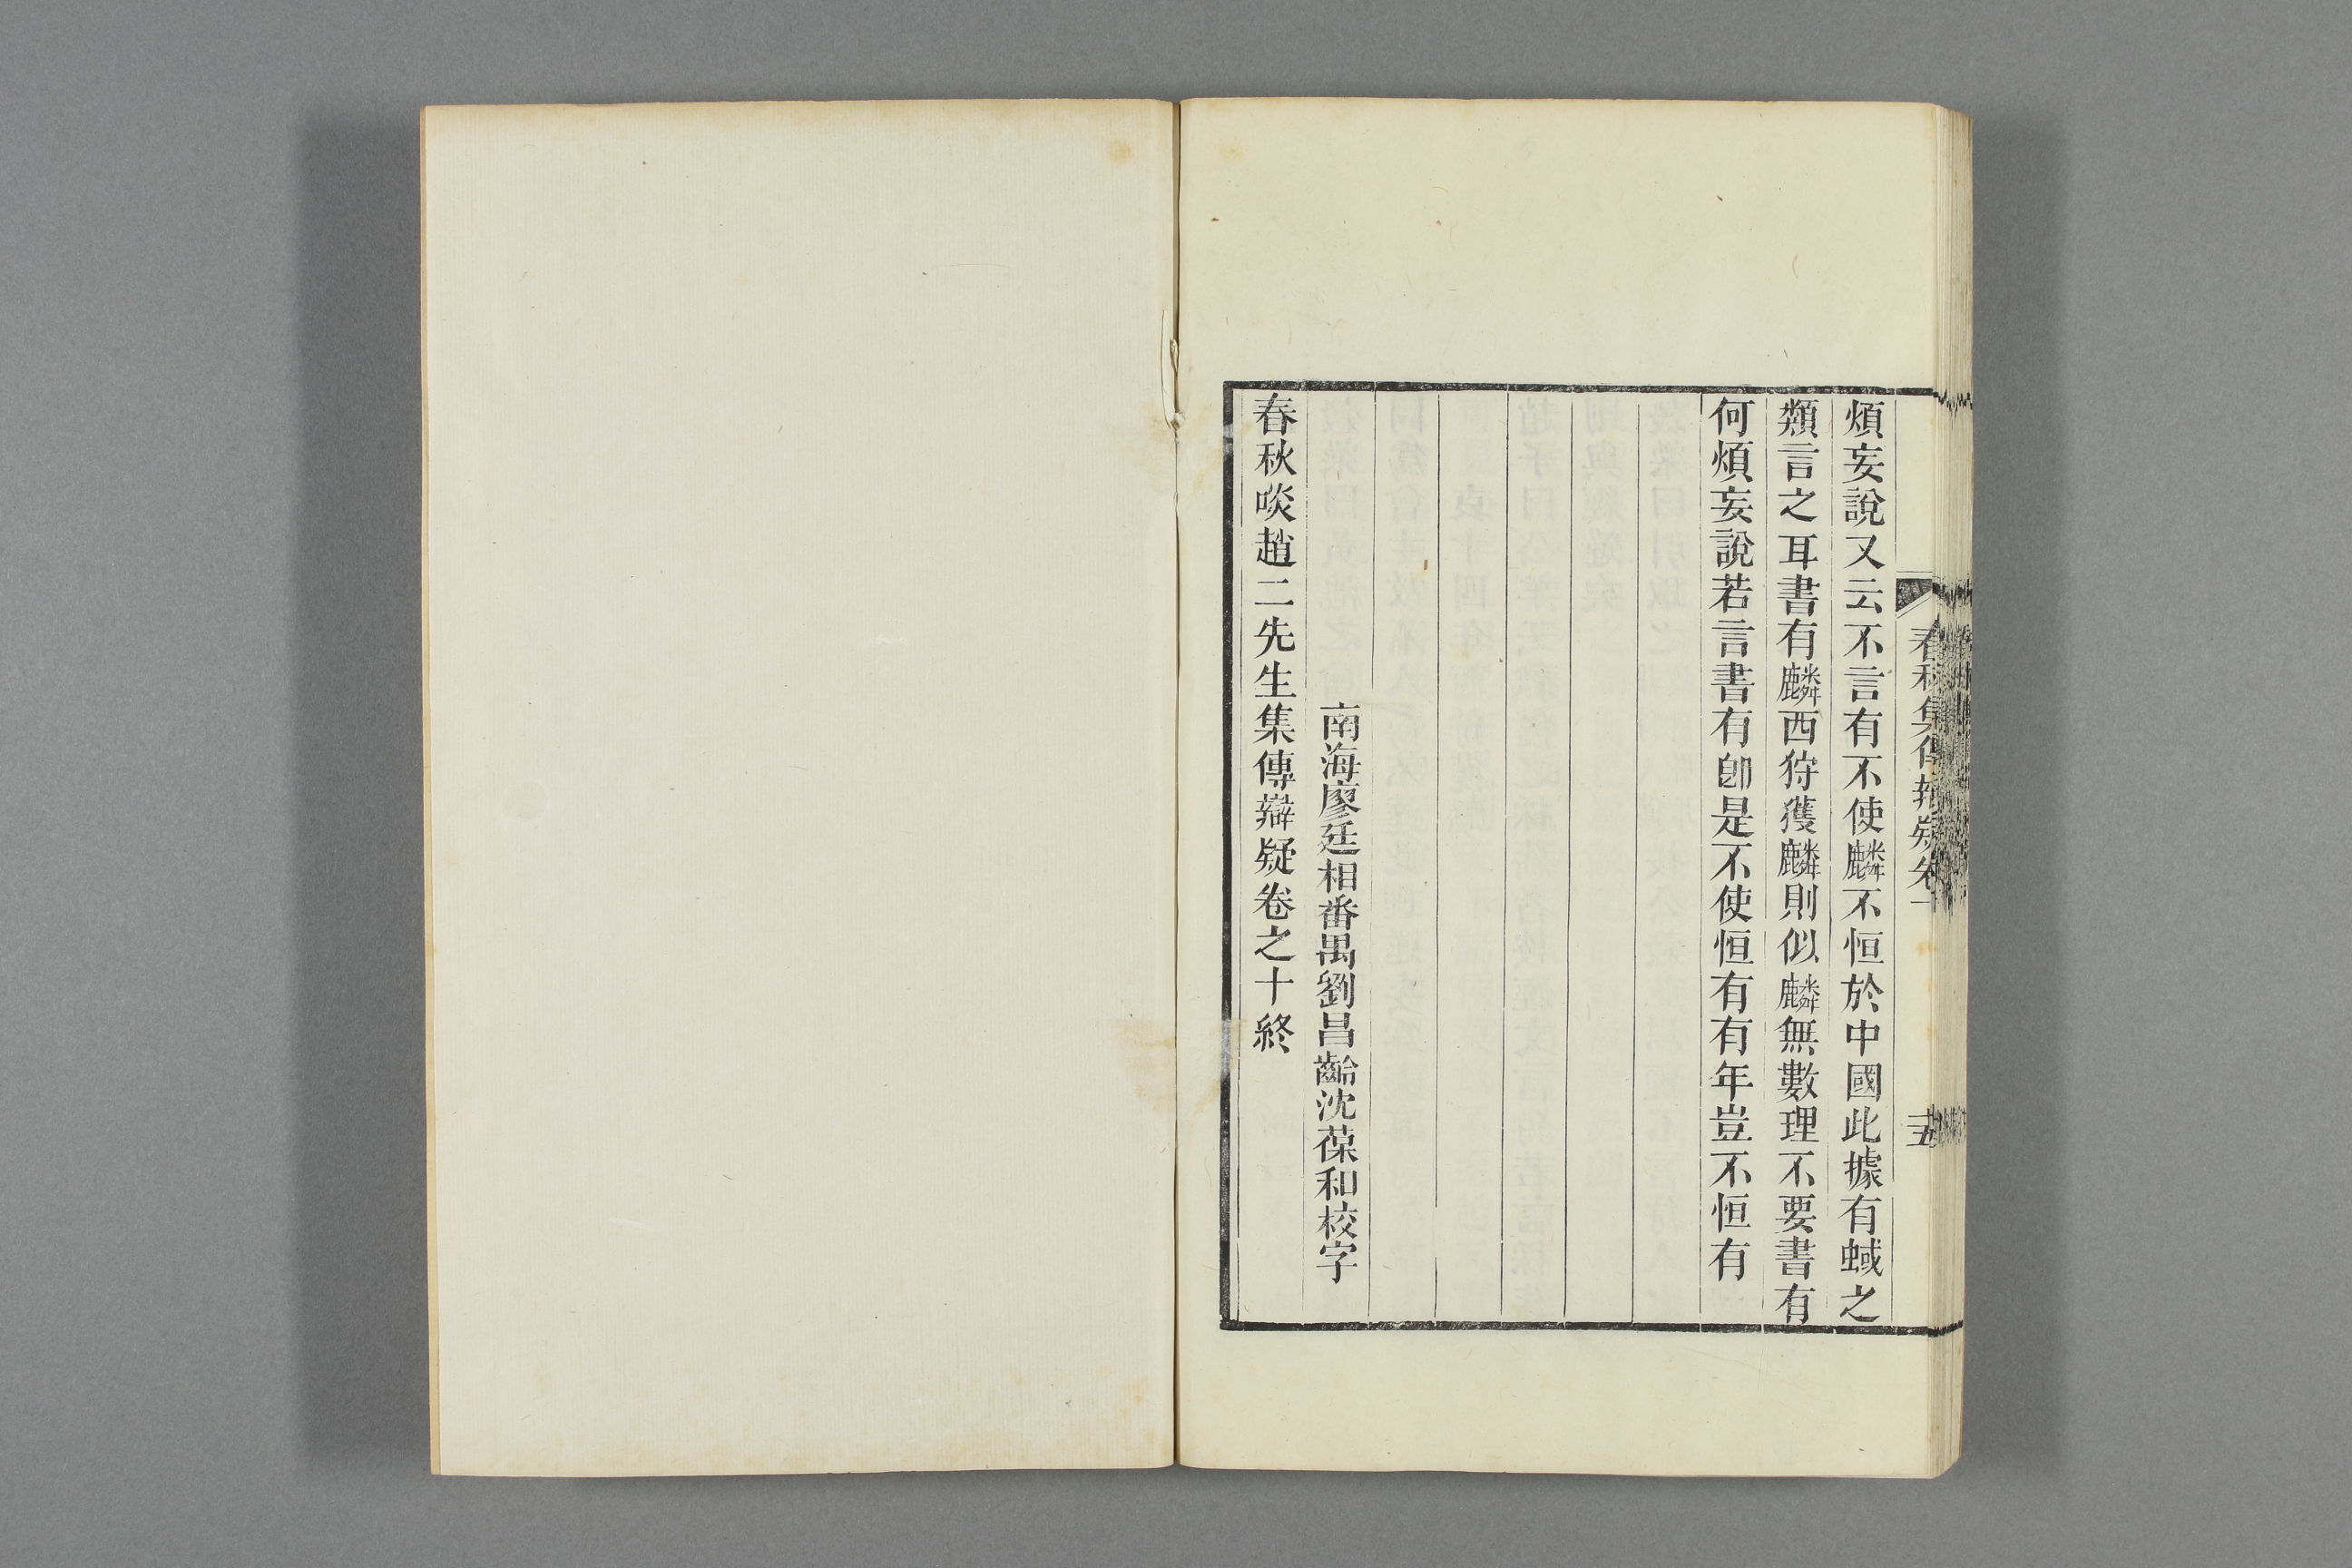 春秋集傳辨疑卷十
十五
煩妄說又云不言有不使麟不恒於中國此據有蜮之
類言之耳書有麟西狩獲麟則似麟無數理不要書有
何煩妄說若言書有卽是不使恒有有年豈不恒有
南海廖廷相番禺劉昌齡沈葆和校字
春秋啖趙二先生集傳辯疑卷之十終